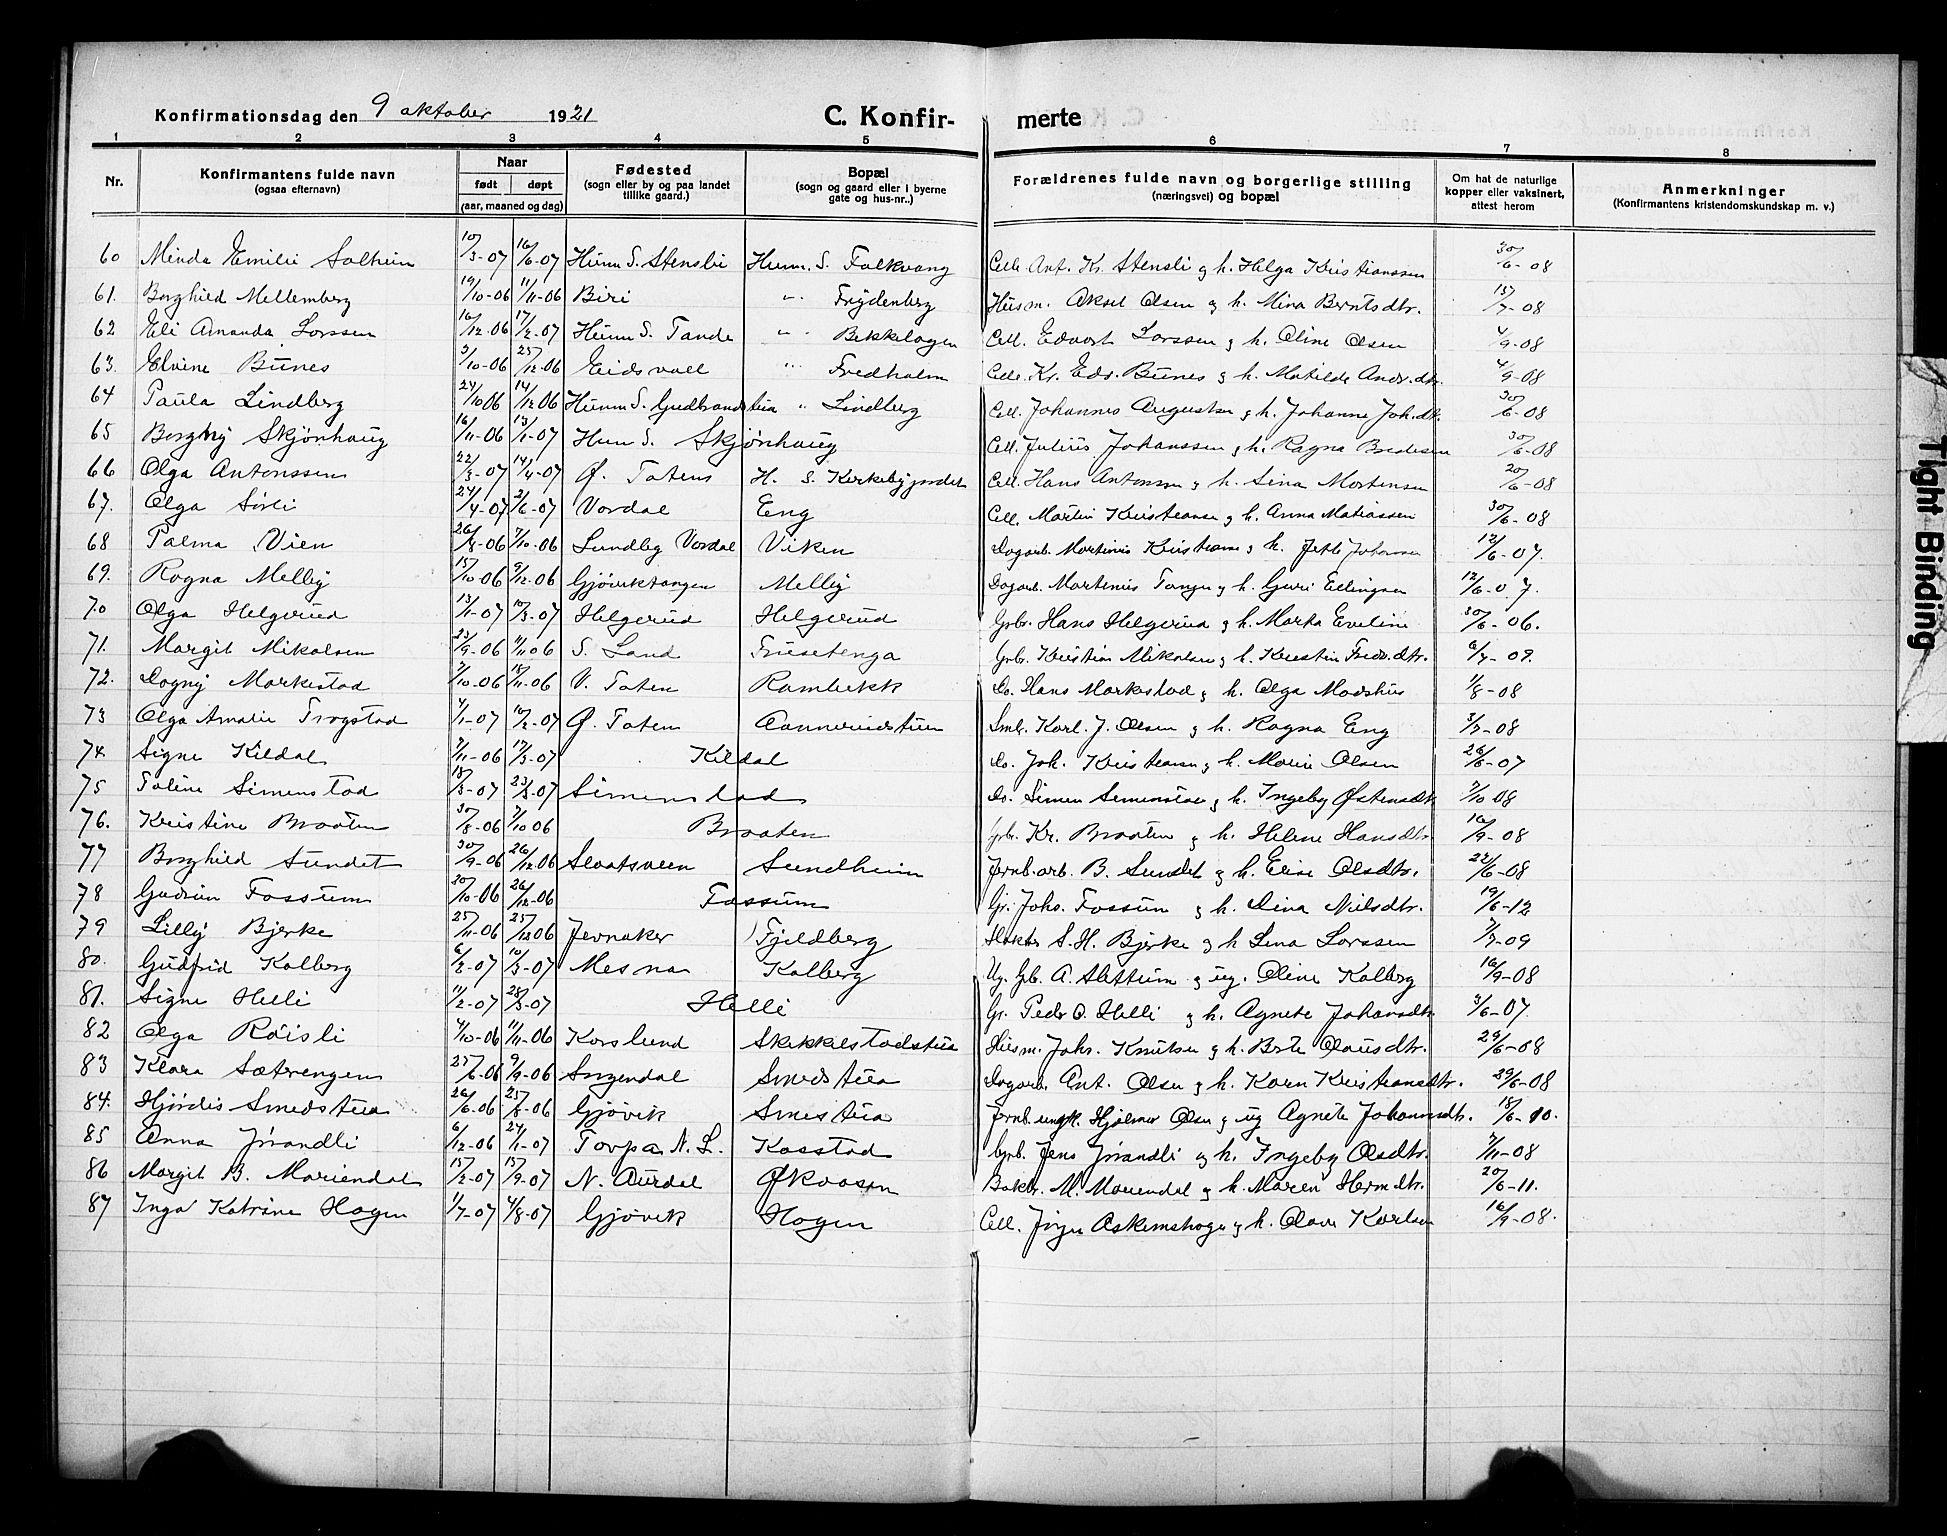 Konfirmationsdag den 9 oktober 1921 C. Konfir- merte
1 2 3 4 5 6 7 8
Nr. Konfirmantens fulde navn (ogsaa efternavn) Naar født døpt (aar, maaned og dag) Fødested (sogn eller by og paa landet tillike gaard.) Bopæl (sogn og gaard eller i byerne gate og hus-nr..) Forældrenes fulde navn og borgerlige stilling (næringsvei) og bopæl Om hat de naturlige kopper eller vaksinert, attest herom Anmerkninger (Konfirmantens kristendomskundskap m. v.)
60 Minda Emilie Solheim 10/3-07 16/6-07 Hunn S. Stensli Hunn. S. Falkvang Cell. Ant. Kr. Stensli og h. Helga Kristianssen 30/6-08
61. Borghild Mellemberg 19/10-06 11/11-06 Biri -"- Frydenberg Husm. Aksel Olsen og h. Mina Berntsdtr. 15/7-08
62 Eli Amanda Larssen 16/12-06 17/2-07 Hunn S. Tande -"- Bekkelagen Cell. Edvart Larssen og h. Oline Olsen 4/9-08
63. Elvine Bunes 3/10-06 25/12-06 Eidsvoll -"- Fredholm Cell. Kr. Edv. Bunes og h. Matilde Andr.dtr. 4/9-08
64 Paula Lindberg 24/10 06 14/12 06 Hunn S. Gudbrandstua " Lindberg Cell. Johannes Augustsen og h. Johanne Joh.dtr. 30/6-08
65 Borghy Skjønhaug 16/11-06 13/1-07 Hun S. Skjønhaug Cell. Julius Johanssen og h. Ragna Bredesen 30/6-08
66 Olga Antonssen 22/3-07 14/4-07 Ø. Totens H. S. Kirkebyjordet Cell. Hans Antonsen og h. Lina Mortensen 20/6-08
67. Olga Sørli 24/4-07 2/6-07 Vardal Eng Cell. Martin Kristiansen og h. Anna Matiassen 30/6-08
68 Palma Vien 26/8-06 7/10-06 Lundby Vardal Viken Dagarb. Martinus Kristians og h. Johansen 12/6-07.
69. Ragna Melby 15/10 06 9/12-06 Gjøviktangen Melby Dagarb. Martenius Tangen og h. Guri Ellingsen 12/6-07.
70 Olga Helgerud 13/1-07 10/3-07 Helgerud Helgerud Grbr. Hans Helgerud og h. Marta Eveline 30/6-06.
71. Margit Mikalsen 23/9-06 11/11 06 S. Land Frusetenga Grbr. Kristian Mikalsen og h. Kristin Fredr.dtr. 6/7-09.
72. Dagny Markestad 7/10-06 18/11-06 V. Toten Rambekk Do. Hans Markestad og h. Olga Madshus 1/8-08
73 Olga Amalie Trogstad 4/1-07 10/2-07 Ø. Toten Aannerudstuen Smbr. Karl J. Olsen og h. Ragna Eng 3/7-08
74 Signe Kildal 7/11-06 17/3-07 Kildal Do. Joh. Kristiansen og h. Marie Olsen 26/6-07
75 Toline Simenstad 18/3-07 23/3-07 Simenstad Do. Simen Simenstad og h. Ingeby Østensdtr. 7/10 08
76. Kristine Braaten 30/8-06 7/10 06 Braaten Grbr. Kr. Braaten og h. Helene Hansdtr. 16/9-08
77 Borghild Sundet 30/9-06 26/12-06 Slaatsveen Sundheim Jernb.arb. B. Sundet og h. Elise Olsdtr. 22/6-08
78 Gudrun Fossum 20/10-06 26/12-06 Fossum Gr. Johs. Fossum og h. Dina Nielsdtr. 19/6-12
79 Lilly Bjerke 25/11-06 25/12 06 Jevnaker Fjeldberg Slakter S. H. Bjerke og h Lena Larssen 7/7-09
80. Gudfrid Kalberg 6/2-07 10/3-07 Mesna Kalberg Ug. Grb. A. Slettum og ug. Oline Kalberg 16/9-08
81. Signe Helli 11/2-07 28/3-07 Helli Gr. Peder O. Helli og h. Agnete Johansdtr. 3/6-07.
82 Olga Røisli 4/10-06 11/11-06 Korslund Skikkelstadstua Husm. Johs. Knutsen og h. Berte Olausdtr. 29/6-08
83 Klara Sæterengen 25/6-06 9/9-06 Snzendal Smedstua Dagarb. Ant. Olsen og h. Karn Kristiansdtr. 29/6-08
84. Hjørdis Smedstua 26/6-06 25/8-06 Gjøvik Smestua Jernb. ungk. Hjalmar Olsen og ug Agnete Johannsdtr. 18/6-10.
85 Anna Jørandli 6/12-06 24/1-07 Torpa N. L. Kasstad Grb. Jens Jørandli og h. Ingeby Olsdtr. 7/11-08
86 Margit B. Mariendal 15/2-07 15/9-07 N. Aurdal Økaasen Baktr. M. Mariendal og h. Maren Hermdtr. 20/6-11.
87 Inga Katrine Hagen 1/7-07 4/8-07 Gjøvik Hagen Cell. Jørgen Askimshagen og h. Olava Karlsen 16/9-08.
Tight Binding